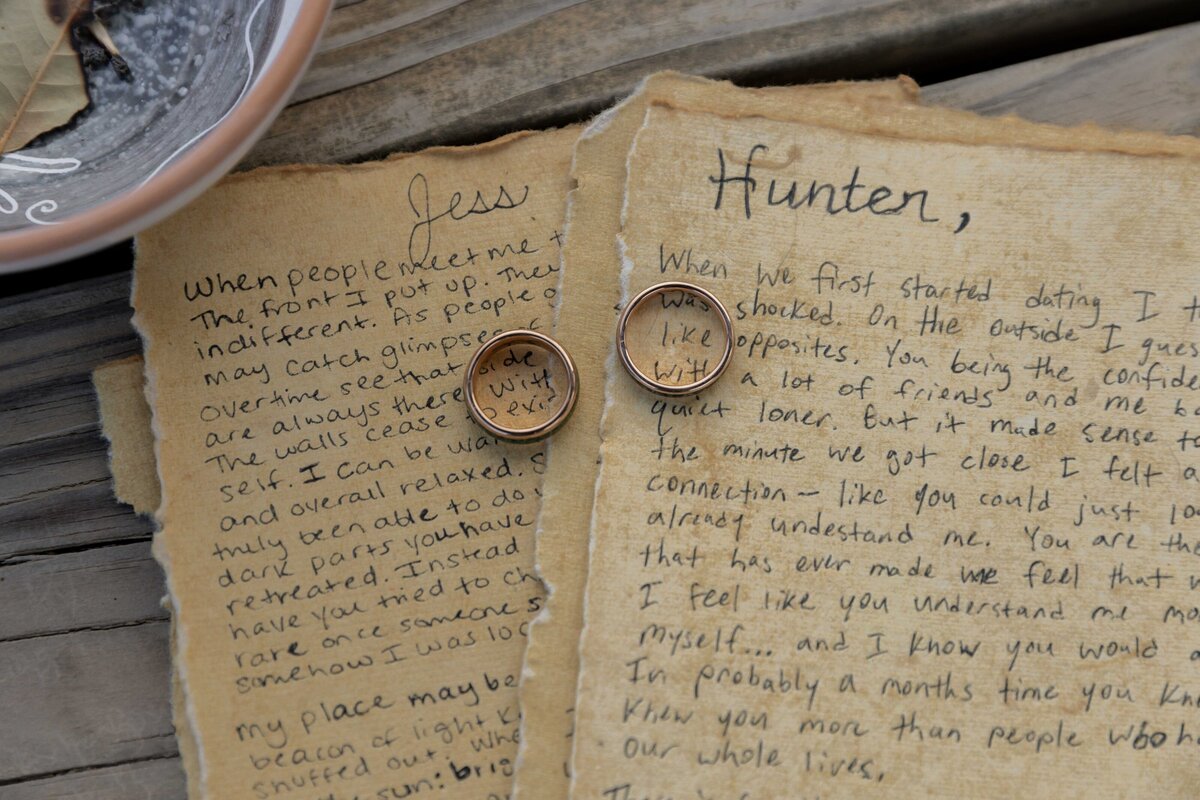 Jess
When people meet me
The front I put up. They
indifferent. As people
may catch glimpses of
overtime see that side
are always there with
The walls cease exit
self. I can be
and overall relaxed.
truly been able to do
dark parts you have
retreated. Instead
have you tried to
rare once someone
somehow I was
my place may be
beacon of light
snuffed out. Whe
sun: brig
Hunter,
When we first started dating I
was shocked. On the outside I gues
like opposites. You being the confide
with a lot of friends and me
quiet loner. But it made sense
the minute we got close I felt a
connection — like you could just
already undestand me. You are the
that has ever made me feel that
I feel like you understand me mo
myself... and I know you would
In probably a months time you
Knew you more than people who
our whole lives.